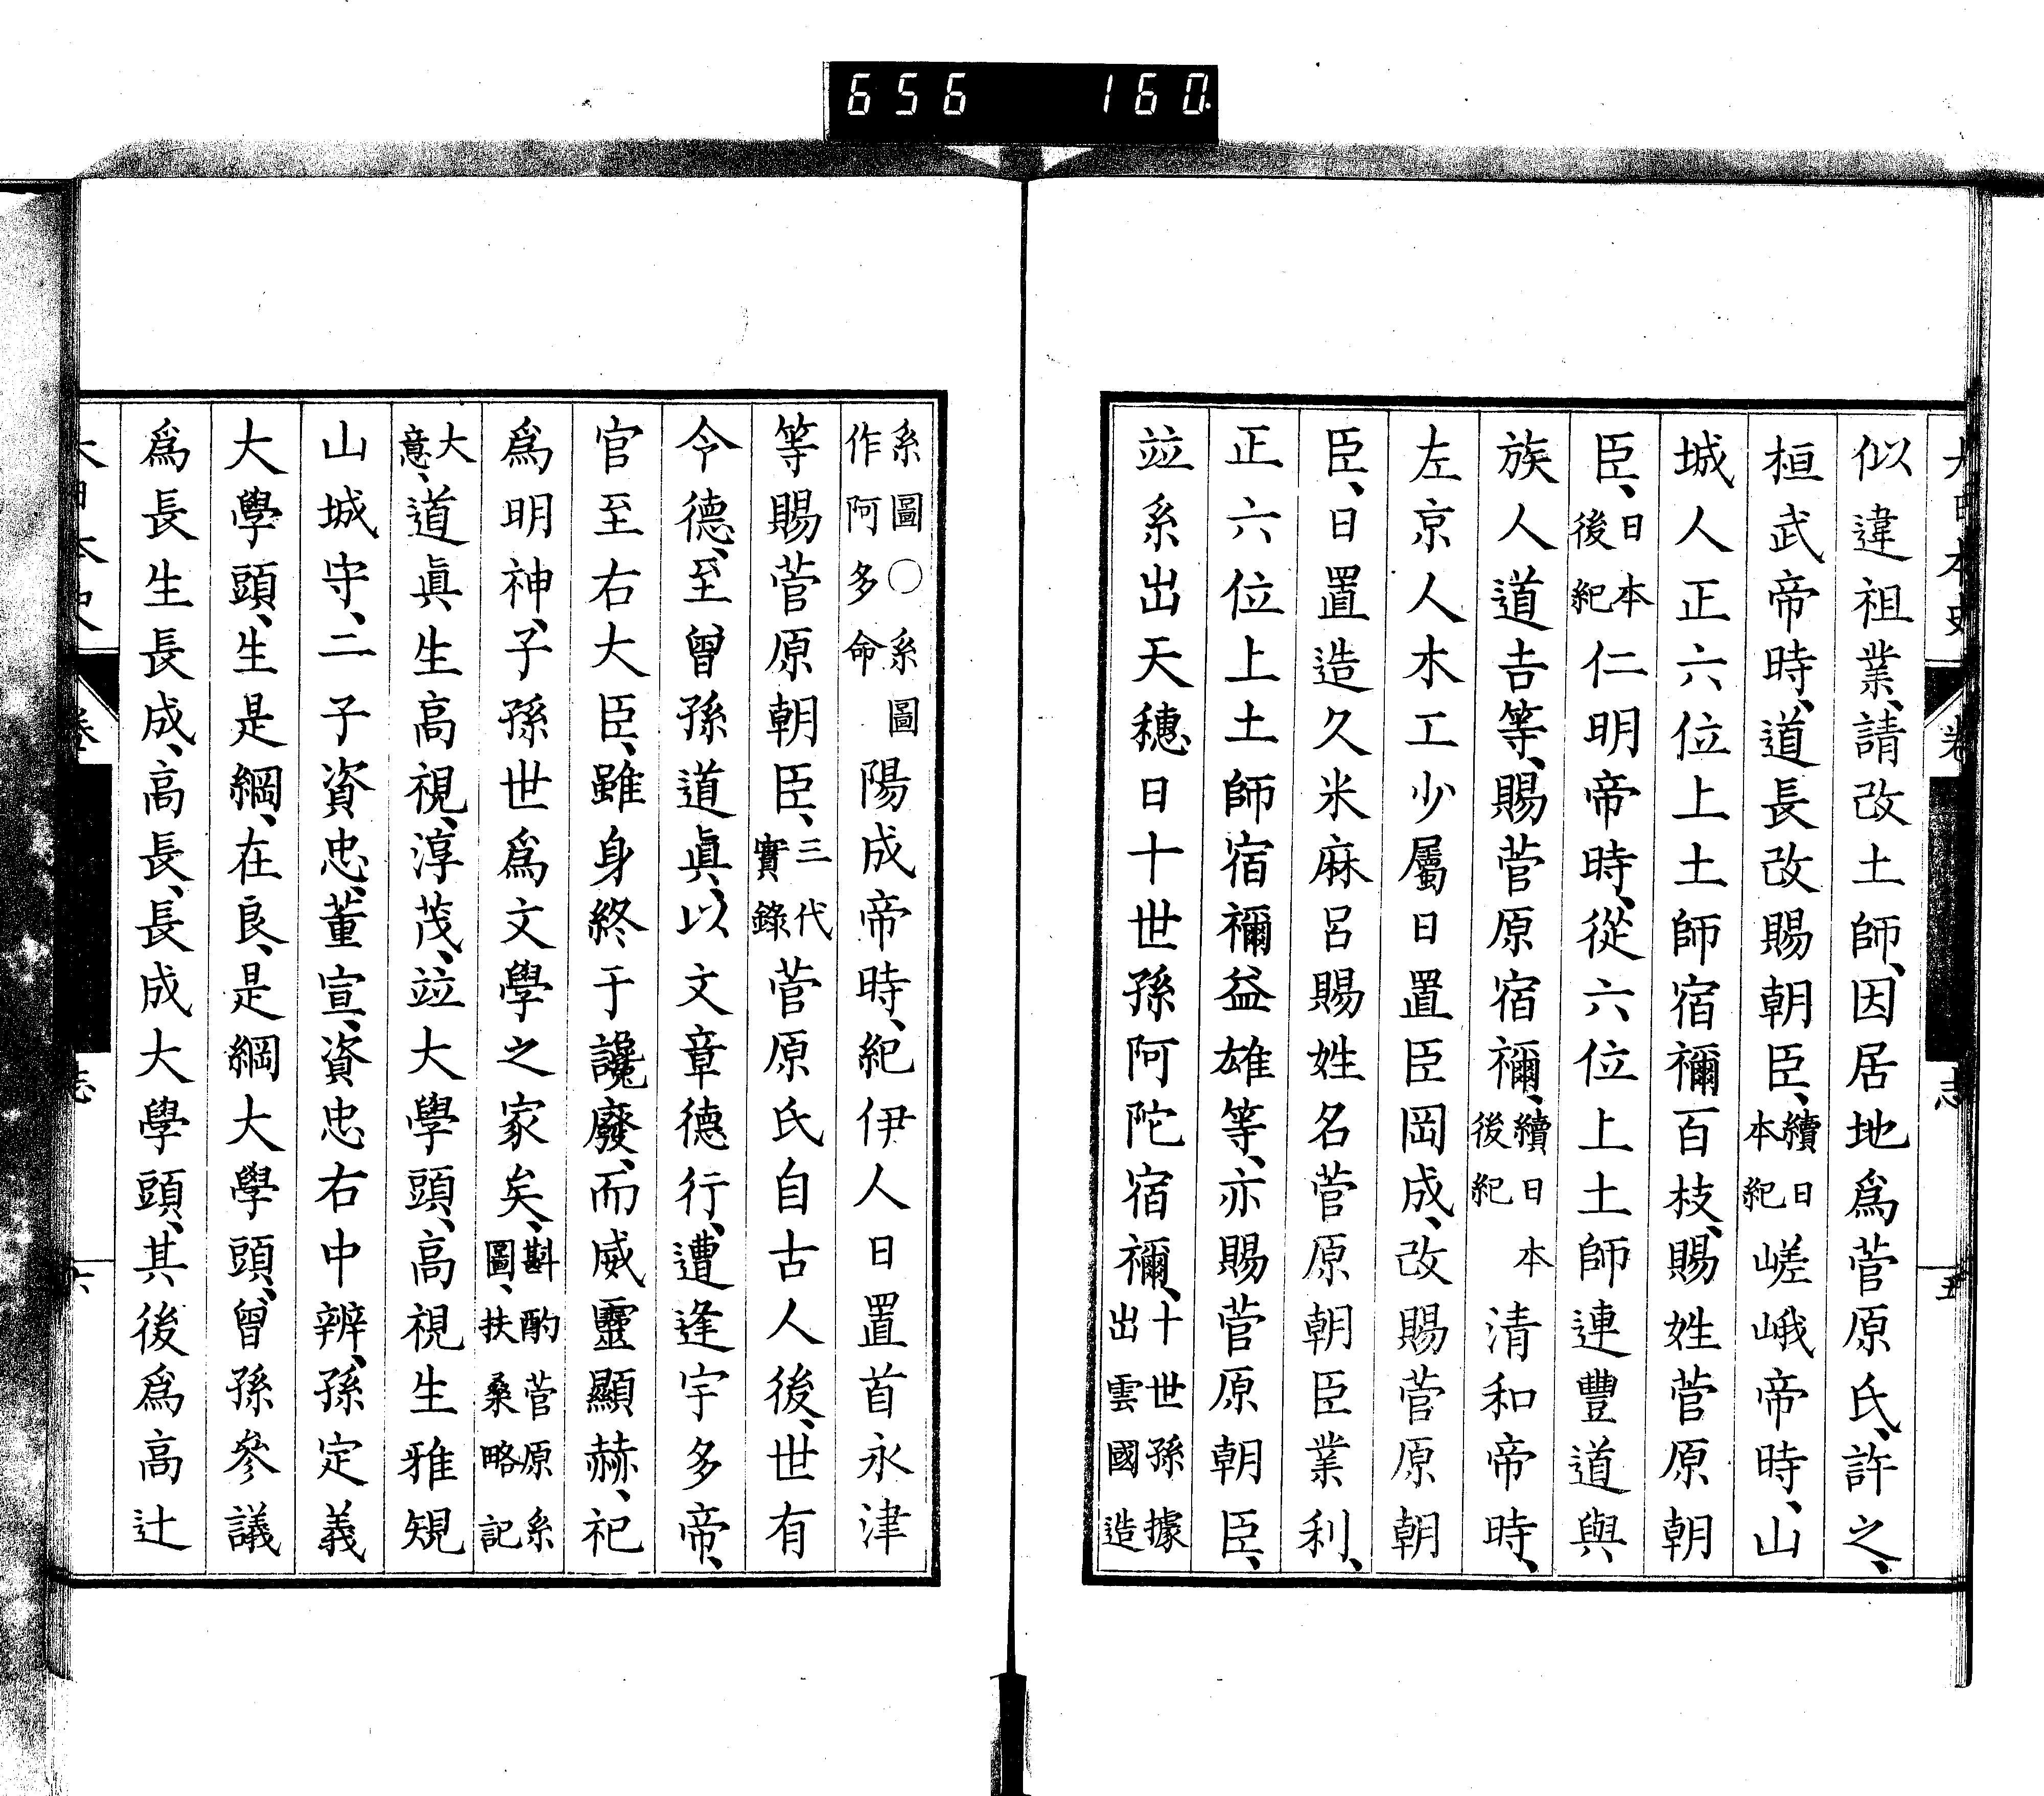 656 160.
大日本史 卷 志 五
似違祖業、請改土師、因居地爲菅原氏、許之、
桓武帝時、道長改賜朝臣、續日本紀嵯峨帝時、山
城人正六位上土師宿禰百枝、賜姓菅原朝
臣、日本後紀仁明帝時、從六位上土師連豐道與
族人道吉等、賜菅原宿禰、續日本後紀清和帝時、
左京人木工少屬日置臣岡成、改賜菅原朝
臣、日置造久米麻呂賜姓名菅原朝臣業利、
正六位上土師宿禰益雄等、亦賜菅原朝臣、
竝系出天穗日十世孫阿陀宿禰、十世孫據出雲國造
系圖〇系圖作阿多命陽成帝時、紀伊人日置首永津
等賜菅原朝臣、三代實錄菅原氏自古人後、世有
令德、至曾孫道眞、以文章德行、遭逢宇多帝、
官至右大臣、雖身終于讒廢、而威靈顯赫、祀
爲明神、子孫世爲文學之家矣、斟酌菅原系圖、扶桑略記
大意、道眞生高視、淳茂、竝大學頭、高視生雅規
山城守、二子資忠、董宣、資忠右中辨、孫定義
大學頭、生是綱、在良、是綱大學頭、曾孫參議
爲長生長成、高長、長成大學頭、其後爲高辻
大日本史 卷 志 六